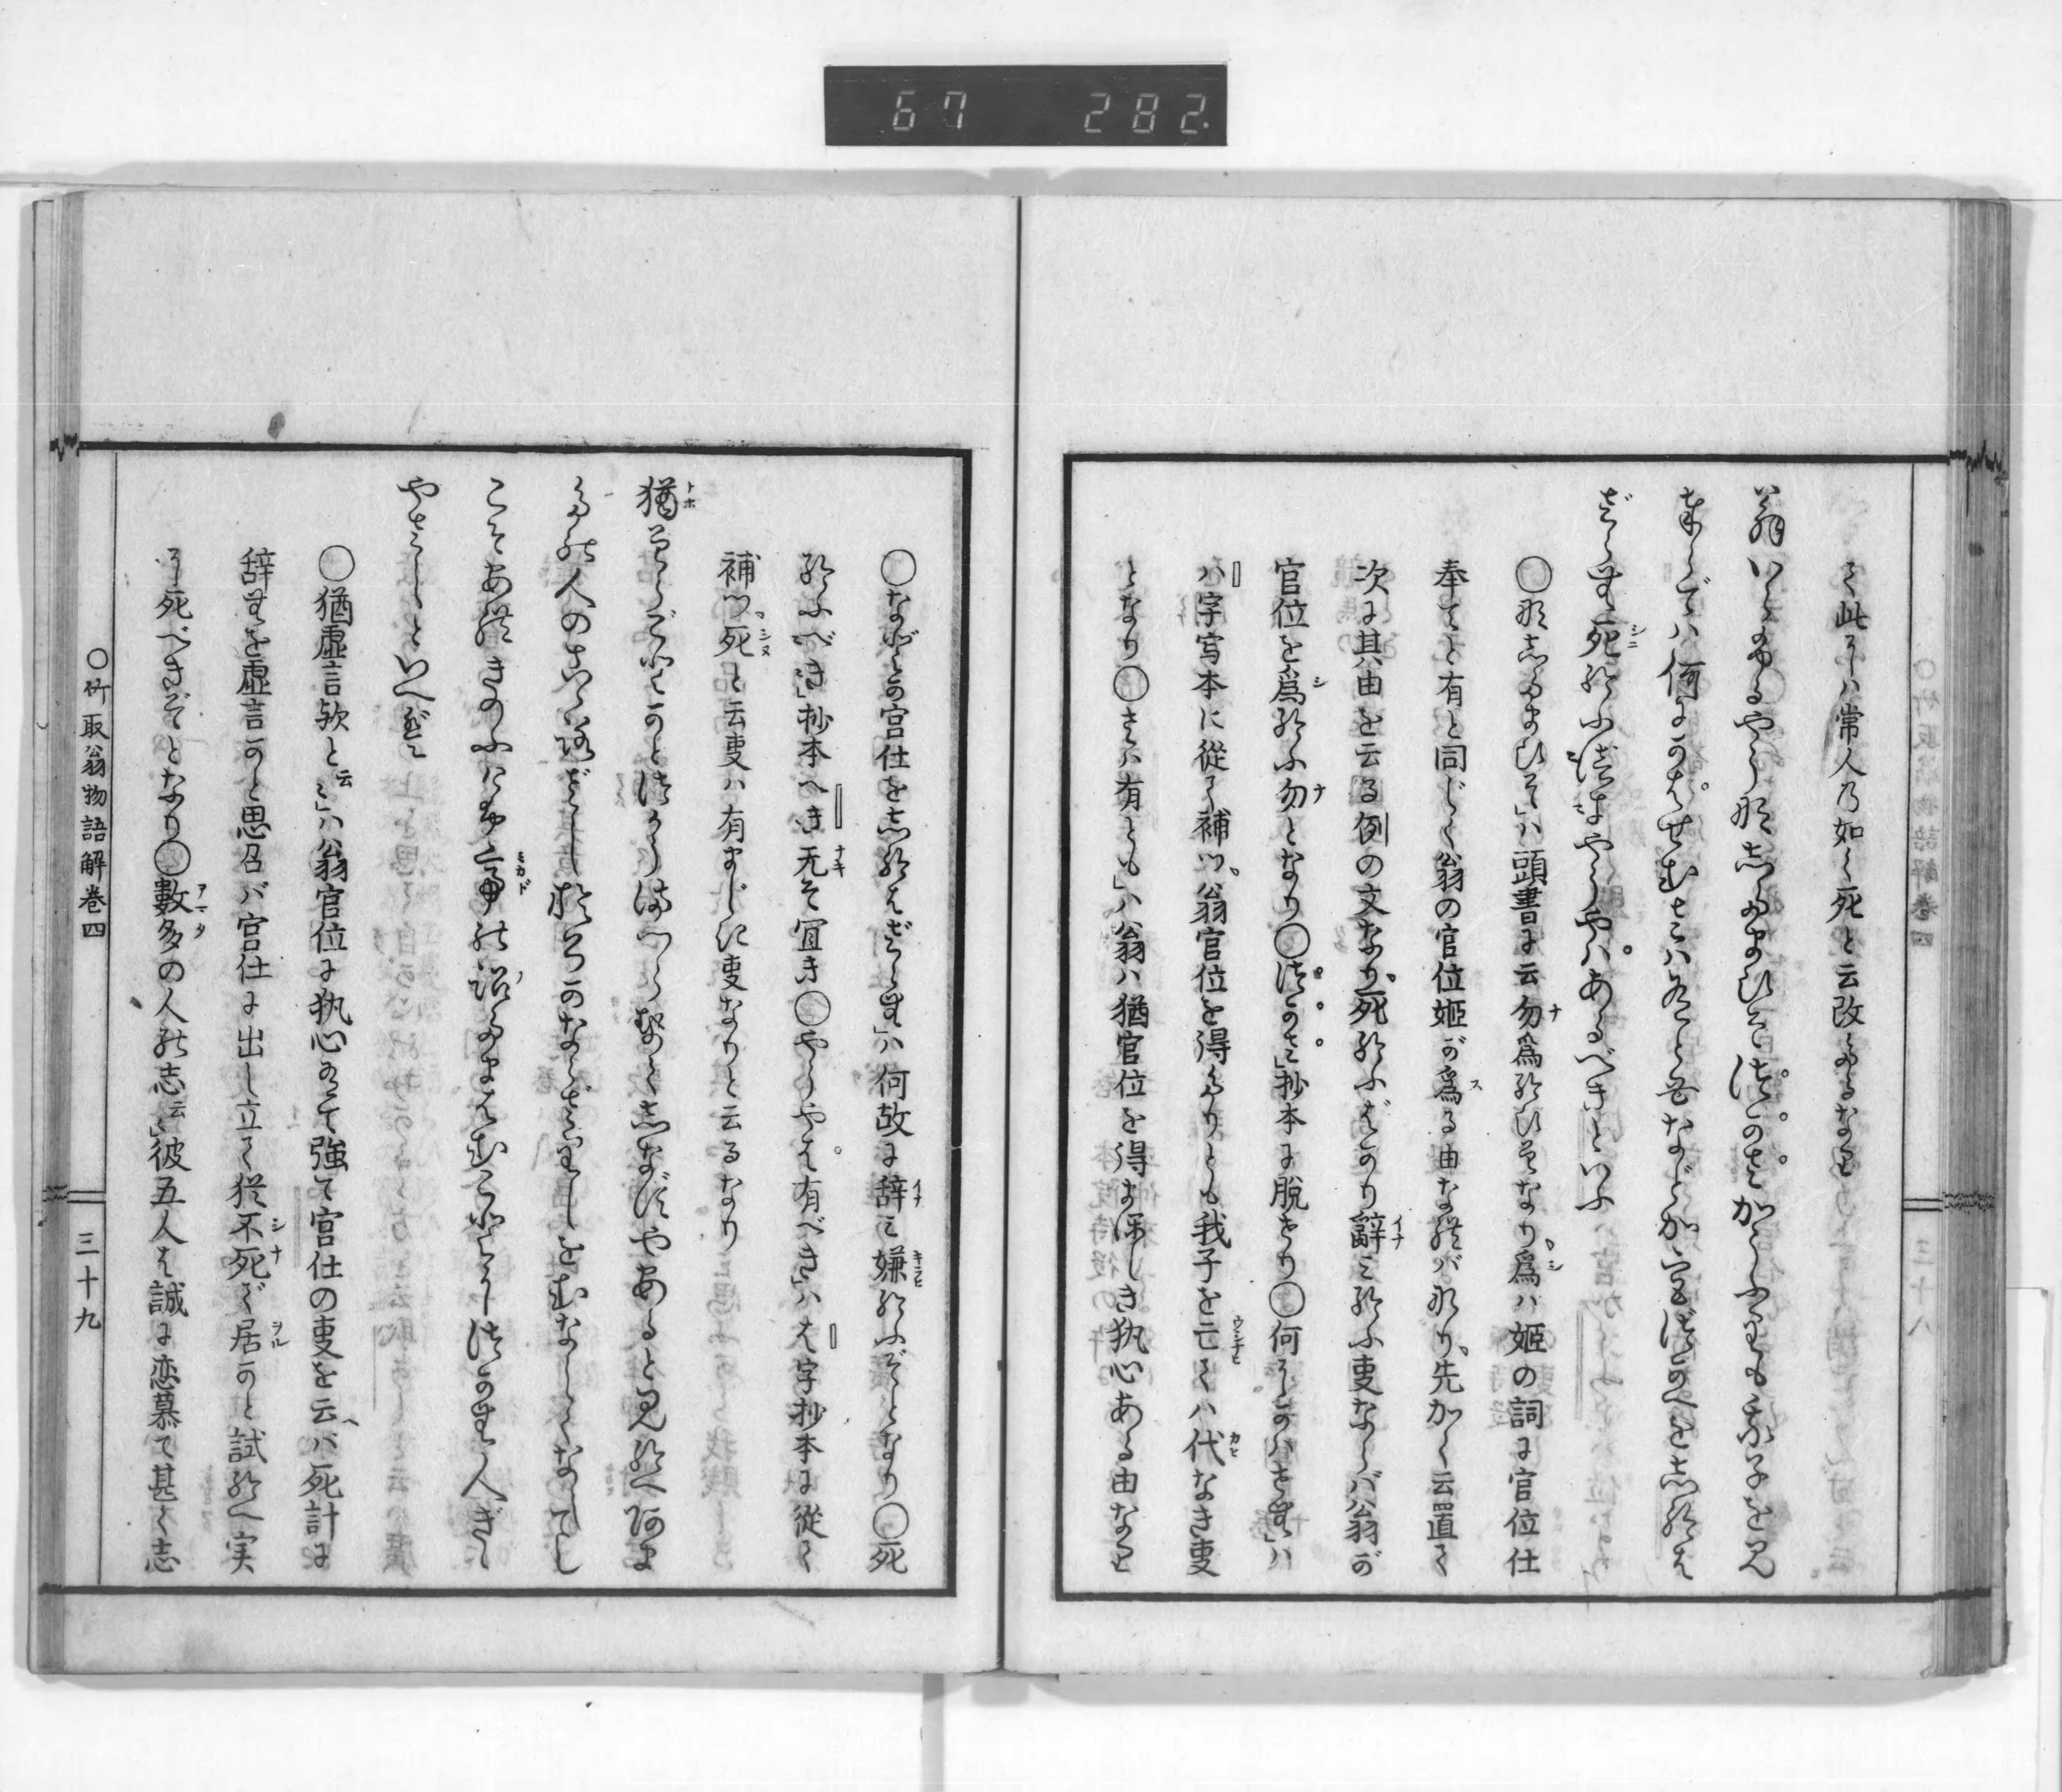 67 282.
て此にハ常人乃如く死と云改めたるなるを
翁いらふるやうなしたまひそつかさかうふりも我子を見
奉らでハ何にかはせむさハありともなどか宮づかへをし給は
ざらむ死給ふべきやうやハあるべきといふ
○なしたまひそ」ハ頭書に云勿為給ひそなり為ハ姫の詞に官位仕
奉てと有と同じく翁の官位姫が為る由なれバなり先かく云置て
次に其ハ由を云る例の文なり死給ふばかり辞み給ふ事ならバ翁が
官位を為給ふ勿となり○つかさ」抄本に脱せり○何にかハせむ」ハ
ハ字写本に従て補つ翁官位を得たりとも我子を亡てハ代なき事
となり○さハ有とも」ハ翁ハ猶官位を得まほしき執心ある由なるを
○などか宮仕をし給はざらむ」ハ何故に辞み嫌給ふぞとなり○死
給ふべき」抄本へき无そ宜き○やうやは有べき」ハは字抄本に従て
補つ死と云事ハ有まじき事なりと云るなり
猶そらごとかと仕うまつらせてしなずやあると見給へあま
たの人の心ざしおろかならざりしをむなしくなしてし
こそあれきのふけふ帝の詔たまはむことにつかむ人ぎゝ
やさしといへば
○猶虚言歟と云〻」ハ翁官位に執心有て強て宮仕の事を云へバ死計に
辞むを虚言かと思召バ宮仕に出し立て猶不死で居かと試給へ実
に死べきぞとなり○数多の人の志云〻」彼五人は誠に恋慕て甚く志
○竹取翁物語解巻四
三十九